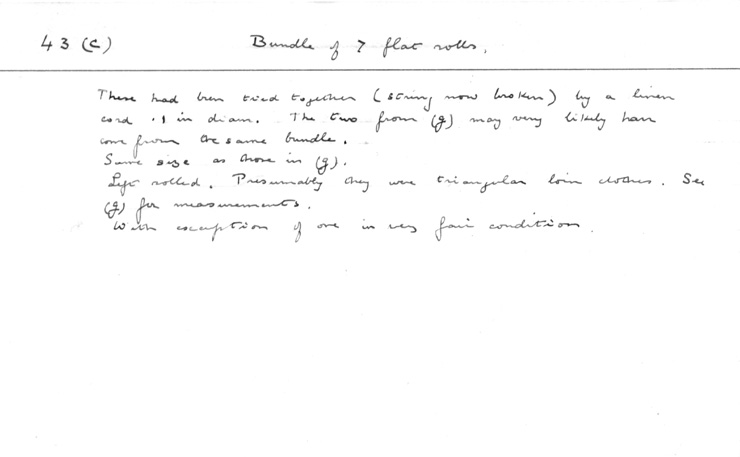 43 (c) Bundle of 7 flat rolls.
These had been tied together (string now broken) by a linen
cord .1 in diam. The two from (g) may very likely have
come from the same bundle.
Same size as those in (g).
Left rolled. Presumably they were triangular loin clothes. See
(g) for measurements.
With exception of one in very fair condition.